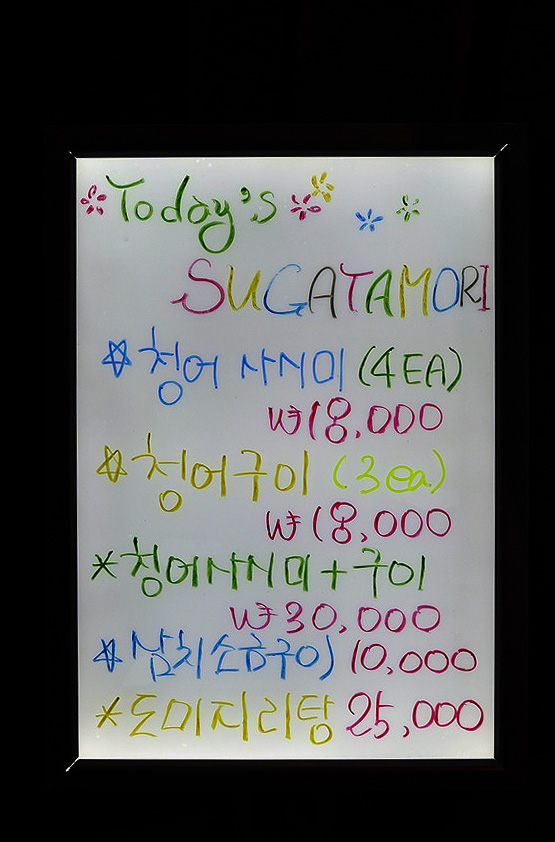 Today's
SUGATAMORI
☆ 청어 사시미 (4EA)
₩18,000
☆ 청어구이 (3ea)
₩18,000
* 청어사시미+구이
₩30,000
☆ 삼치소금구이) 10,000
* 도미지리탕 25,000